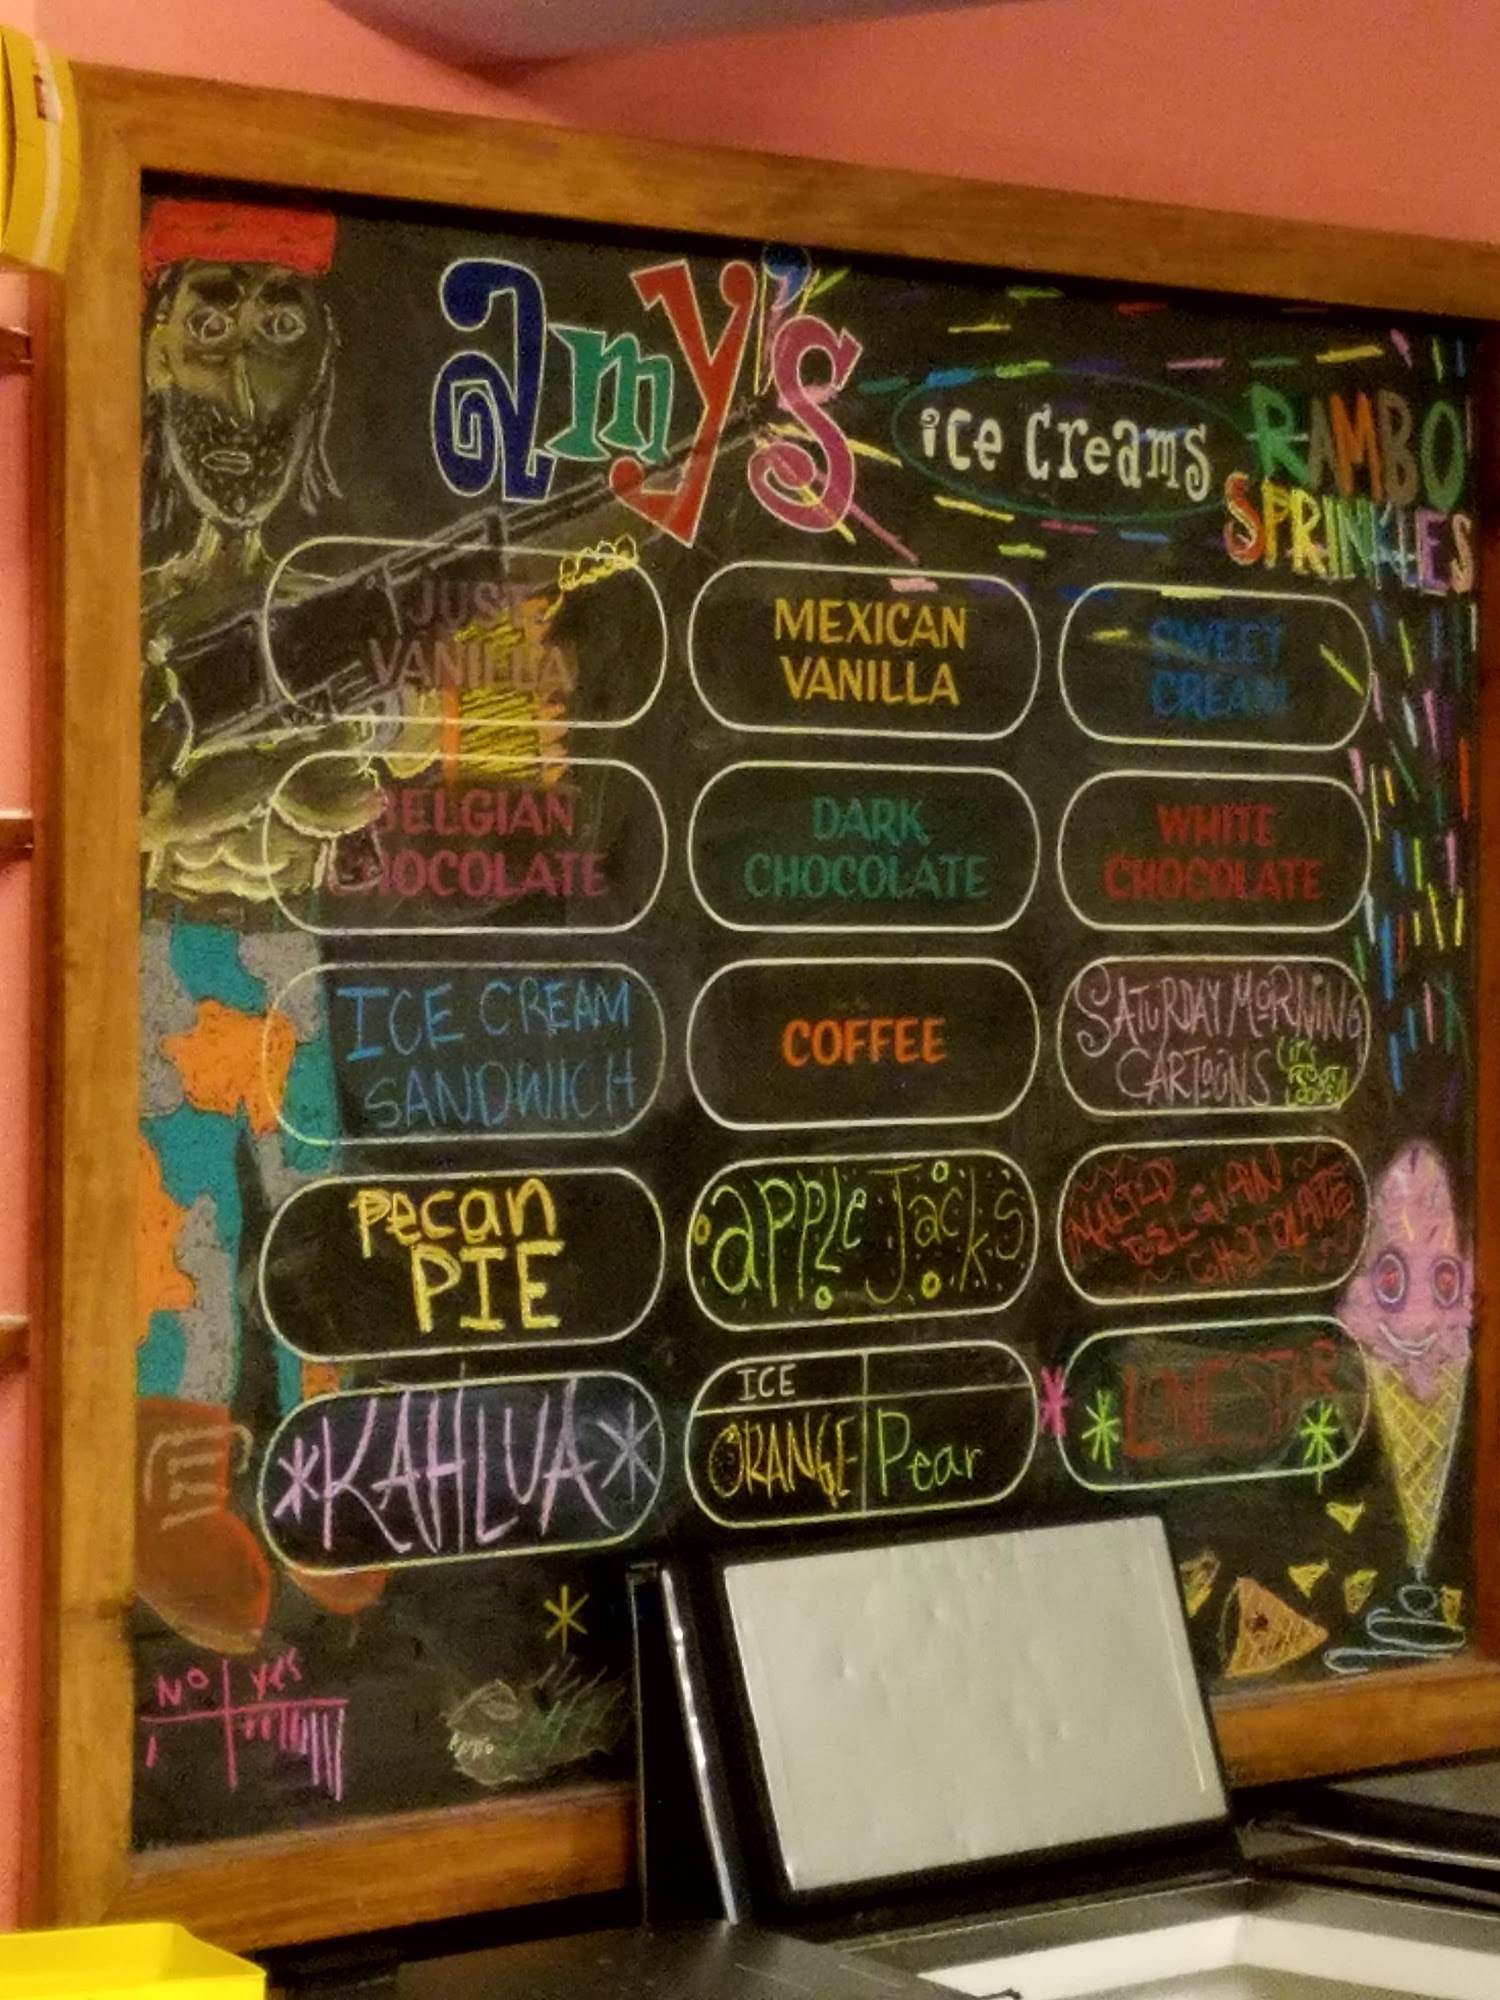 amy's
ice creams
RAMBO
SPRINKLES
JUST
VANILLA
MEXICAN
VANILLA
SWEET
CREAM
BELGIAN
CHOCOLATE
DARK
CHOCOLATE
WHITE
CHOCOLATE
ICE CREAM
SANDWICH
COFFEE
SATURDAY MORNING
CARTOONS
Pecan
PIE
apple Jacks
MALTED
BELGIAN
CHOCOLATE
*KAHLUA*
ICE
ORANGE
Pear
* LONESTAR *
No yes